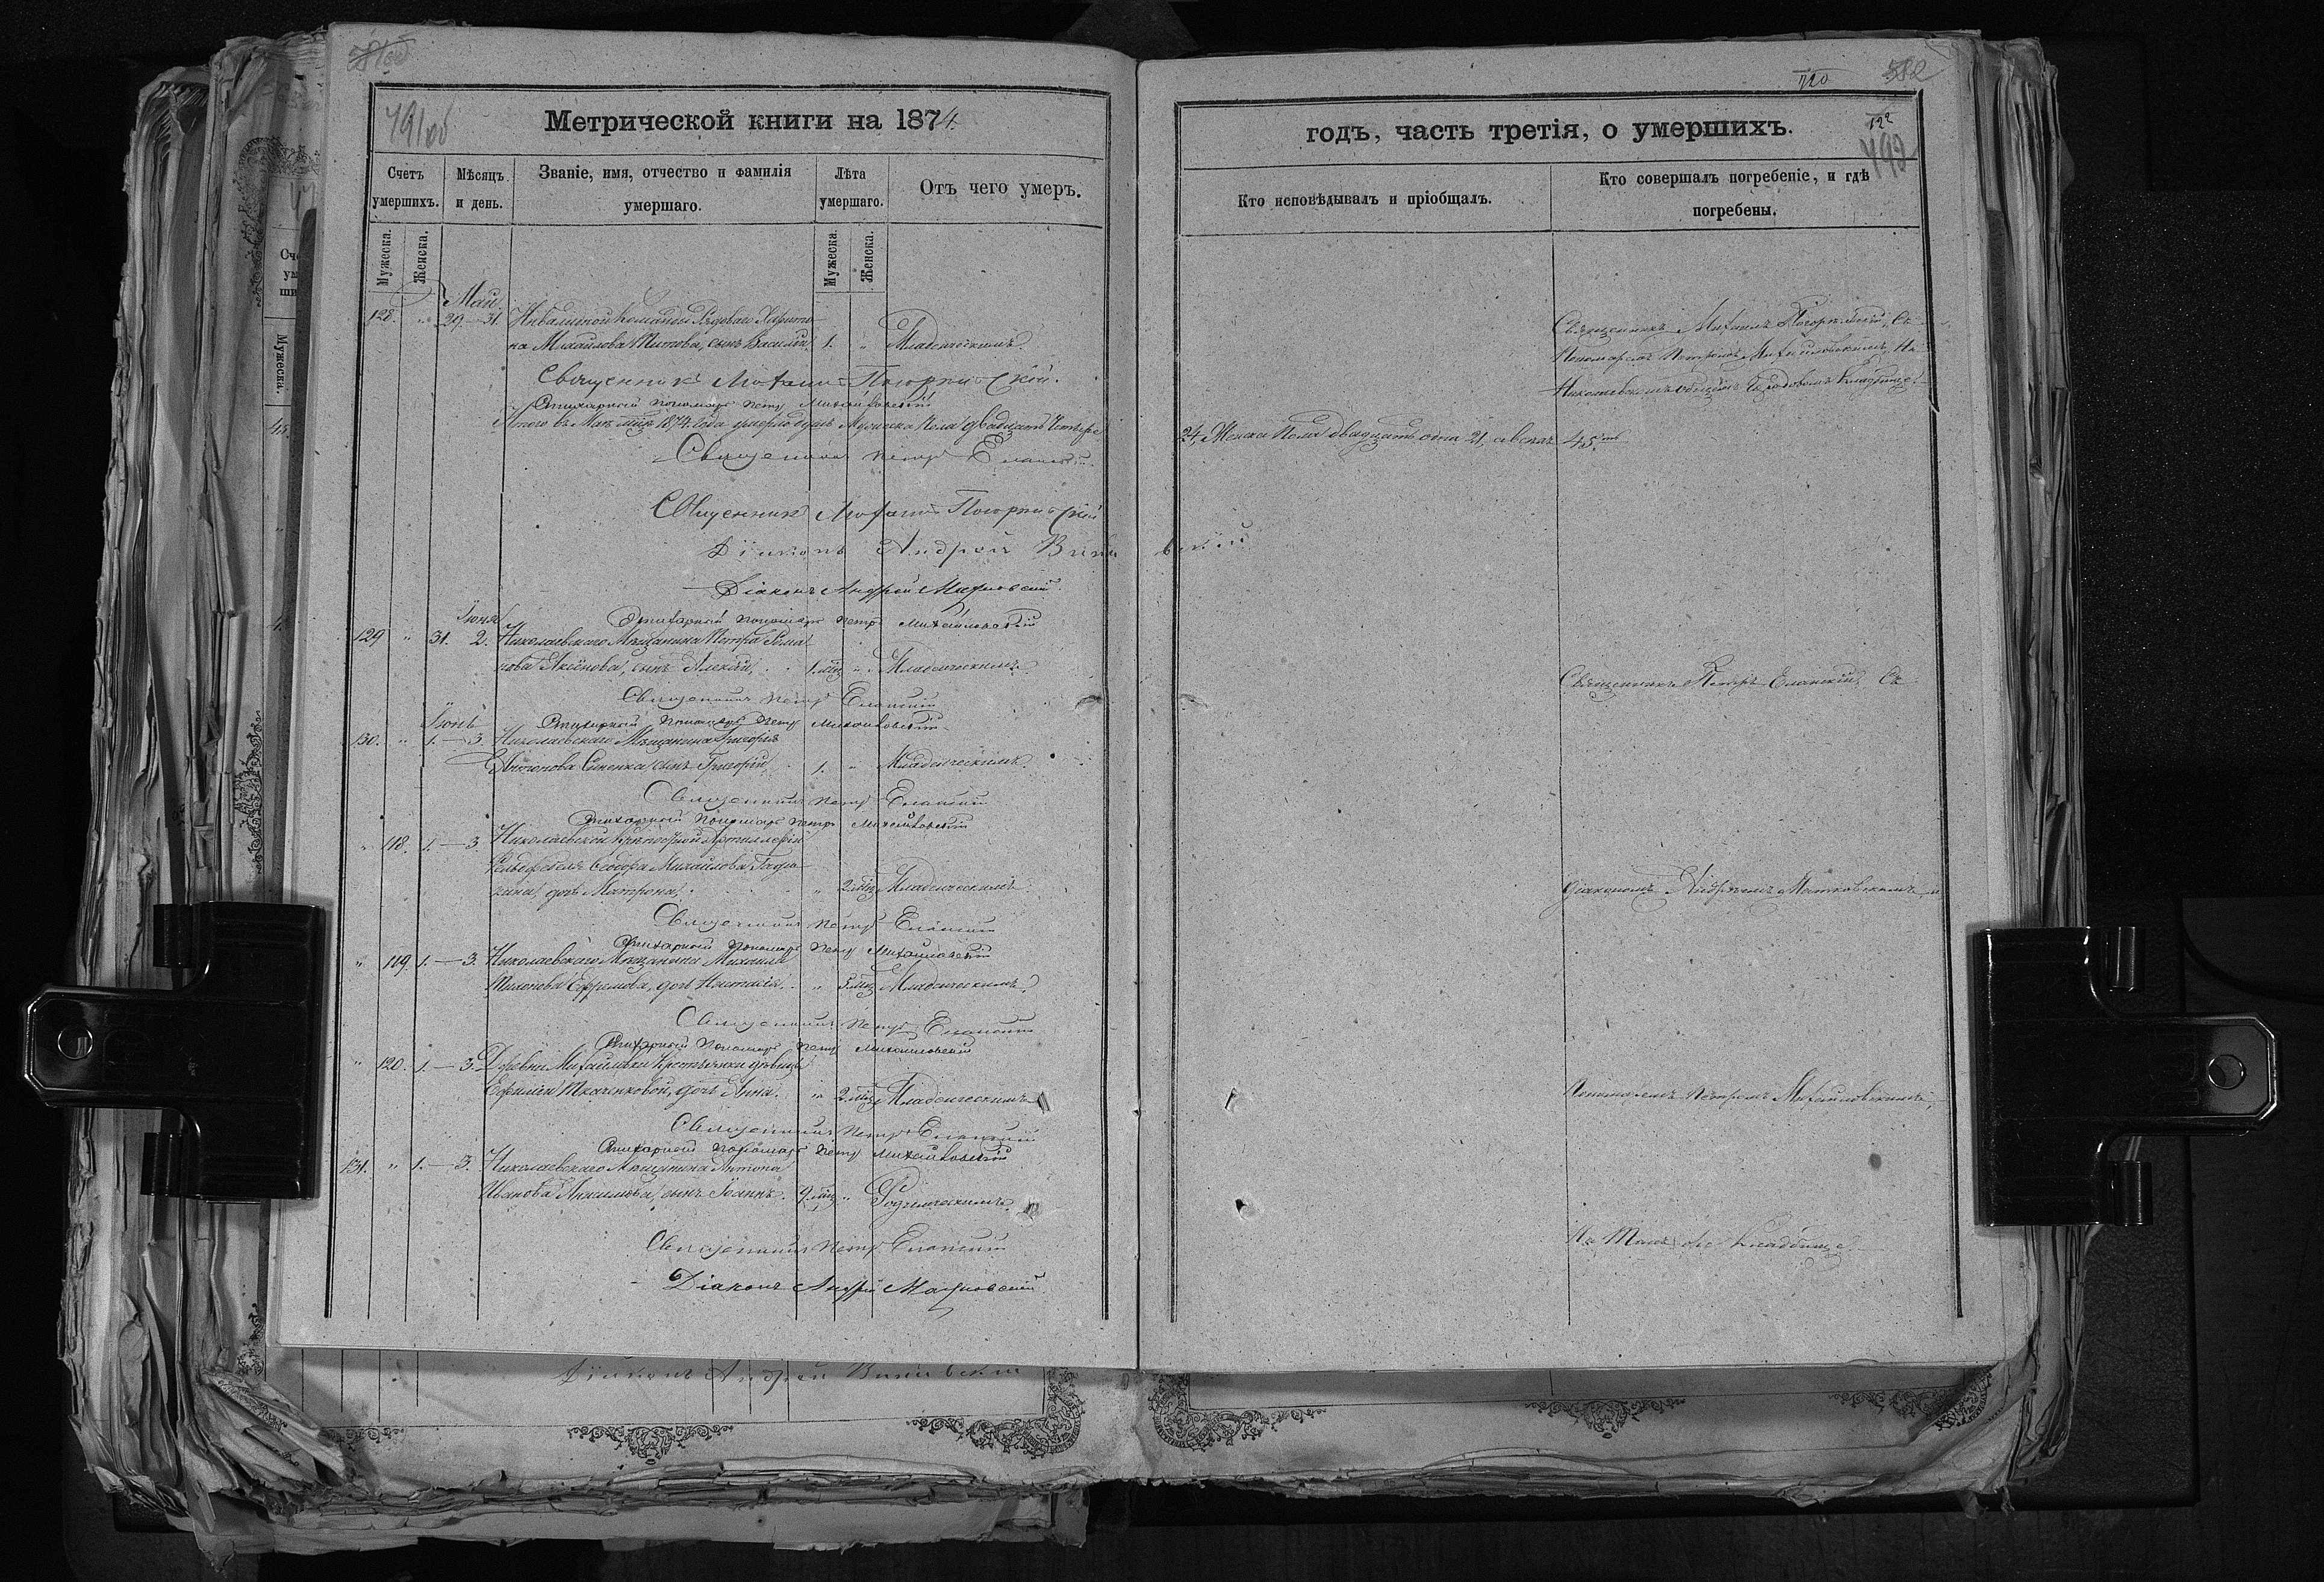 491об
Метрической книги на 1874.
Счетъ умершихъ.
Мѣсяцъ и день.
Званіе, имя, отчество и фамилія умершаго.
Лѣта умершаго.
Отъ чего умеръ.
Мужеска.
Женска.
Мужеска.
Женска.
Май
128. " 29–31. Инвалидной команды Рядоваго Харито-
на Михайлова Титова, сынъ Василій 1. " Младенческимъ.
Священникъ
Стихарный пономарь Петръ Михайловскій
Итого въ Маѣ мцѣ 1874 года умерло душъ Мужеска пола двадцать четыре
Священникъ Петръ Еланскій
Священникъ
Діаконъ Андрей
Діаконъ Андрей
Стихарный пономарь Петръ Михайловскій
Іюня
129 " 31. 2. Николаевскаго Мѣщанина Петра Рома-
нова Аксёнова, сынъ Алексѣй, 1. мѣс " Младенческимъ.
Священникъ Петръ Еланскій
Стихарный пономарь Петръ Михайловскій
Іюнь
130. " 1.–3. Николаевскаго Мѣщанина Григорія
Антонова сынъ Григорій, 1. " Младенческимъ.
Священникъ Петръ Еланскій
Стихарный пономарь Петръ Михайловскій
" 118. 1.–3. Николаевской крѣпостной Артиллеріи
Фельдфебеля Ѳеодора Михайлова
дочь Матрона, " 2 мѣс Младенческимъ
Священникъ Петръ Еланскій
Стихарный пономарь Петръ Михайловскій
" 119. 1.–3. Николаевскаго Мѣщанина Михаила
Ефремова, дочь Настасія, " 5 мѣс Младенческимъ.
Священникъ Петръ Еланскій
Стихарный пономарь Петръ Михайловскій
" 120. 1.–3. Деревни Михайловки крестьянки дѣвицы
Ефиміи Ткаченковой, дочь Анна. " 2. мѣс Младенческимъ
Священникъ Петръ Еланскій
Стихарный пономарь Петръ Михайловскій
131. " 1.–3. Николаевскаго Мѣщанина Антона
Иванова сынъ Іоаннъ. 9. мѣс " Родимческимъ.
Священникъ Петръ Еланскій
Діаконъ Андрей
Діаконъ Андрей
720
582
122
492
годъ, часть третія, о умершихъ.
Кто исповѣдывалъ и пріобщалъ.
Кто совершалъ погребеніе, и гдѣ погребены.
Священникъ Михаилъ съ
Пономаремъ Петромъ Михайловскимъ, На
Николаевскомъ общемъ Градовомъ кладбищѣ.
24, Женска пола двадцать одна 21, а всѣхъ 45.
Священникъ Петръ Еланскій, Съ
діакономъ Андреемъ и
Пономаремъ Петромъ Михайловскимъ,
На томъ же кладбищѣ.